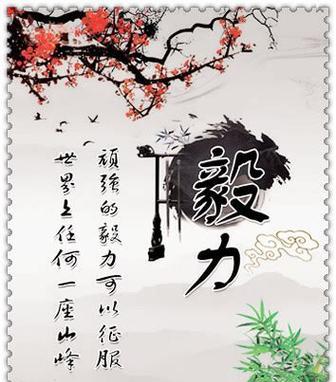 毅力
頑強的毅力可以征服
世界上任何一座山峰